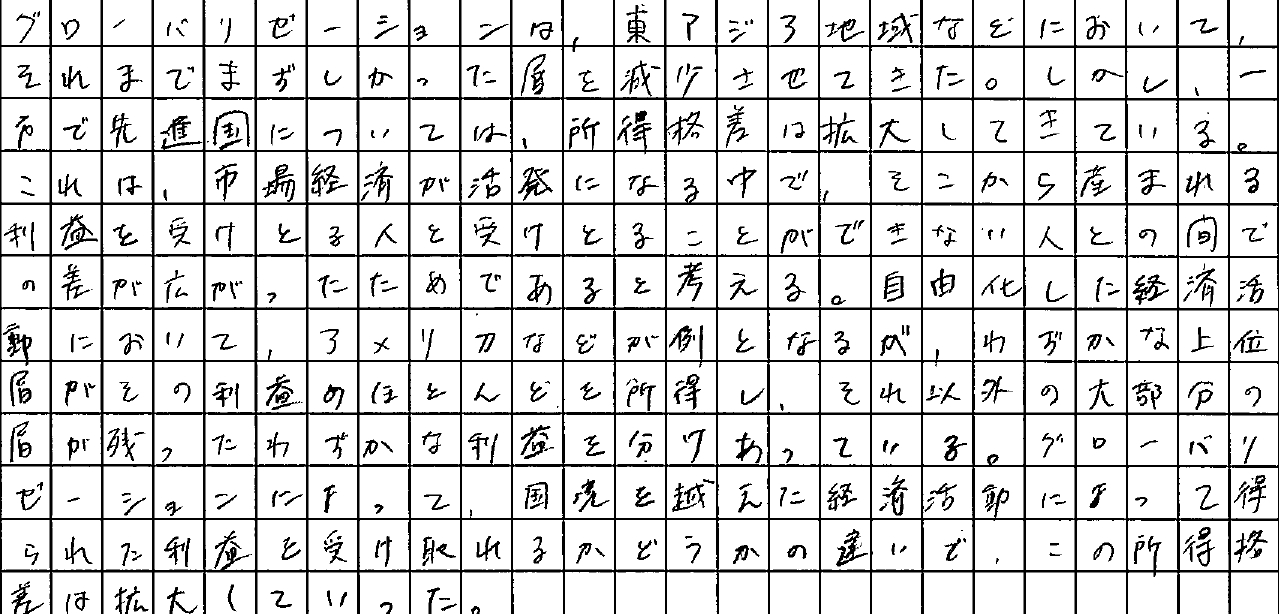 グローバリゼーションは,東アジア地域などにおいて,
それまでまずしかった層を減少させてきた。しかし、一
方で先進国については、所得格差は拡大してきている。
これは,市場経済が活発になる中で,そこから産まれる
利益を受けとる人と受けとることができない人との間で
の差が広がったためであると考える。自由化した経済活
動において,アメリカなどが例となるが,わずかな上位
層がその利益のほとんどを所得し、それ以外の大部分の
層が残ったわずかな利益を分けあっている。グローバリ
ゼーションによって,国境を越えた経済活動によって得
られた利益を受け取れるかどうかの違いで,この所得格
差は拡大していった。